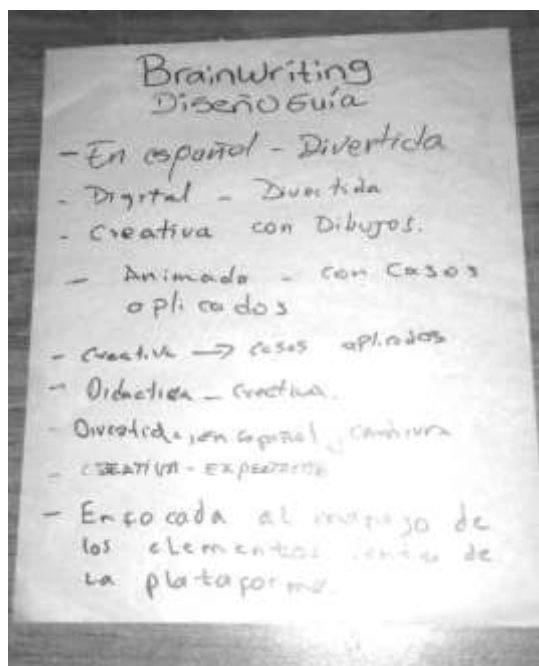 Brainwriting
Diseño Guía
- En español - Divertida
- Digital - Divertida
- Creativa con Dibujos.
- Animada - con Casos
aplicados
- Creativa → casos aplicados
- Didactica - creativa.
- Divertida, en español,
- CREATIVA -
- Enfocada al manejo de
los elementos dentro de
la plataforma.